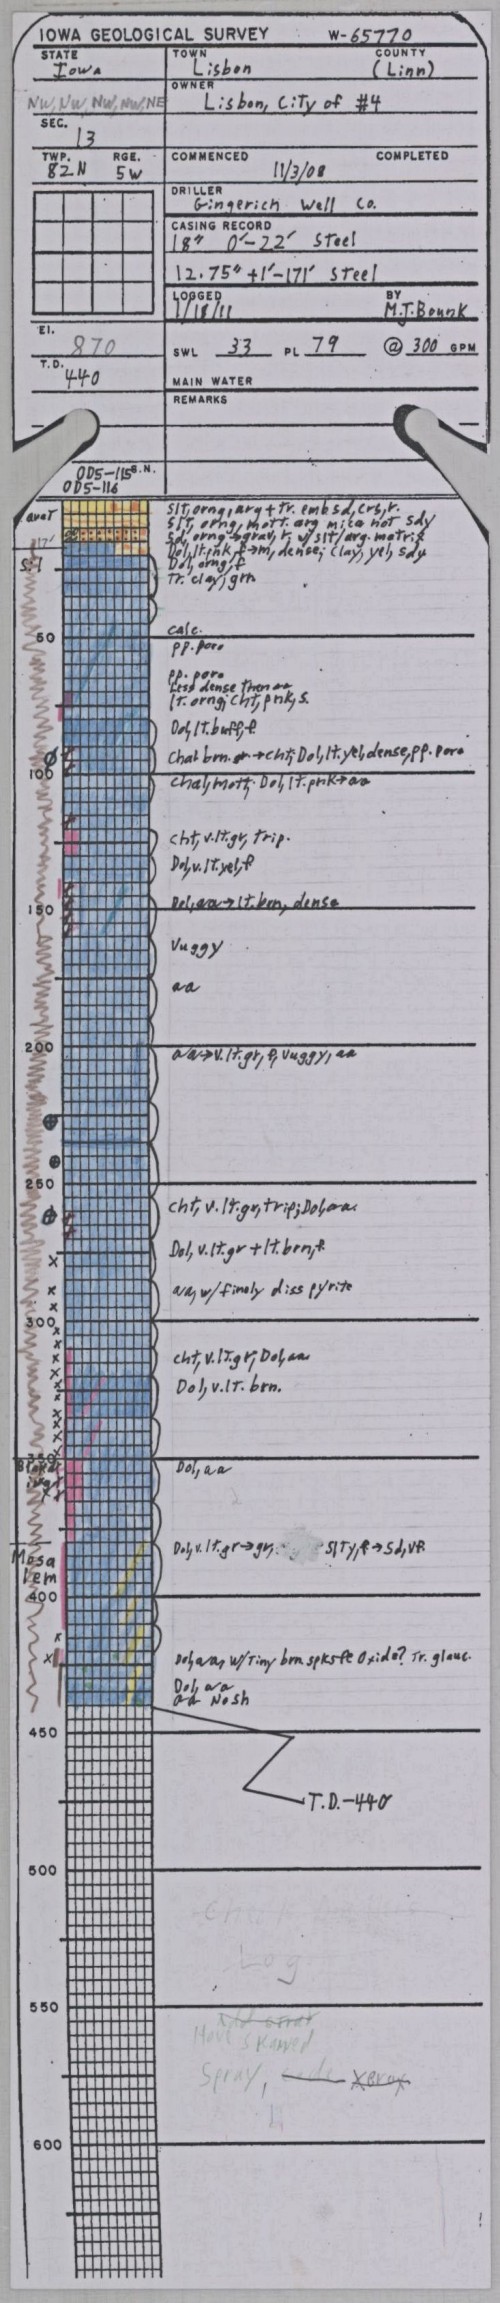 IOWA GEOLOGICAL SURVEY W-65770
STATE
Iowa
TOWN COUNTY
Lisbon (Linn)
NW, NW, NW, NW, NE
OWNER
Lisbon, City of #4
SEC.
13
TWP. RGE.
82N 5W
COMMENCED COMPLETED
11/3/08
DRILLER
Gingerich Well Co.
CASING RECORD
18" 0'-22' Steel
12.75" +1'-171' Steel
LOGGED BY
1/18/11 M.J.Bounk
El.
870
SWL 33 PL 79 @ 300 GPM
T.D.
440
MAIN WATER
REMARKS
OD5-115 S.N.
OD5-116
Slt, orng, arg + tr. emb sd, crs, r.
Slt, orng, mott. arg mica not sdy
Sd, orng→grav, r, w/slt/arg. matrix
17'
Dol, lt. pnk, f→m, dense; clay, yel, sdy
Sil
Dol, orng, f
Tr. clay, grn
calc.
50
pp. poro
pp. poro
Less dense then aa
lt. orng; cht, pnk, s.
Dol, lt. buff, f
Chal brn. or→cht; Dol, lt. yel, dense, pp. poro
100
Chal, mott. Dol, lt. pnk→aa
cht, v. lt. gr, trip.
Dol, v. lt. yel, f
Dol, aa→lt. brn, dense
150
Vuggy
aa
200
aa→v. lt. gr, f, vuggy, aa
250
cht, v. lt. gr, trip; Dol, aa.
Dol, v. lt. gr + lt. brn, f.
aa, w/ finely diss pyrite
300
cht, v. lt. gr; Dol, aa
Dol, v. lt. brn.
350
Dol, aa
Dol, v. lt. gr→gr, slty, f→sd, vf
Mosa
lem
400
Dol, aa, w/ Tiny brn spks fe oxide? Tr. glauc.
Dol, aa
aa No sh
450
T.D.-440
500
Log
550
Have skanned
Spray, code xerox
600